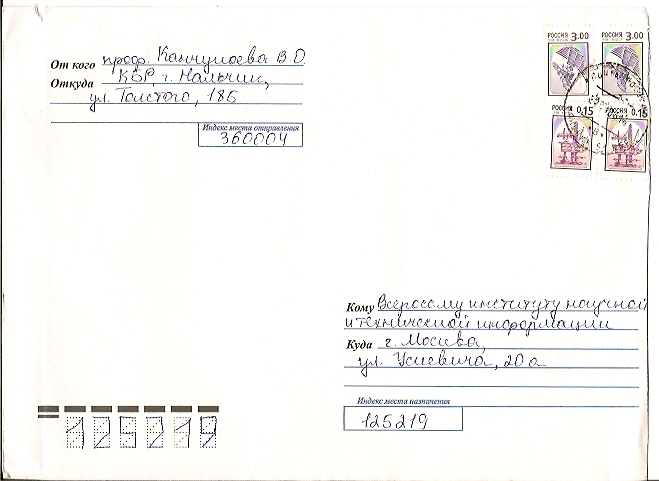 РОССИЯ 3.00
РОССИЯ 3.00
0.15
0.15
От кого проф. Канчукоева В.О.
Откуда КБР, г. Нальчик,
ул. Толстого, 185
Индекс места отправления
360004
Кому Всероссму институту научной
и технической информации
Куда г. Москва,
ул. Усиевича, 20а
Индекс места назначения
125219
125219